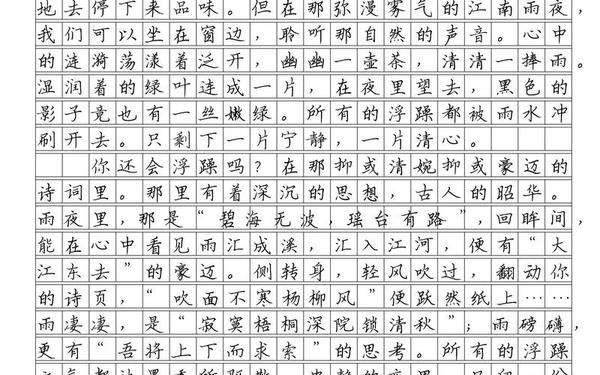 地去停下来品味。但在那弥漫雾气的江南雨夜，
我们可以坐在窗边，聆听那自然的声音。心中
的涟漪荡漾着泛开，幽幽一壶茶，清清一捧雨。
湿润着的绿叶连成一片，在夜里望去，黑色的
影子竟也有一丝嫩绿。所有的浮躁都被雨水冲
刷开去。只剩下一片宁静，一片清心。
你还会浮躁吗？在那抑或清婉抑或豪迈的
诗词里。那里有着深沉的思想，古人的昭华。
雨夜里，那是“碧海无波，瑶台有路”，回眸间，
能在心中看见雨汇成溪，汇入江河，便有“大
江东去”的豪迈。侧转身，轻风吹过，翻动你
的诗页，“吹面不寒杨柳风”便跃然纸上……
雨凄凄，是“寂寞梧桐深院锁清秋”；雨磅礴，
更有“吾将上下而求索”的思考。所有的浮躁